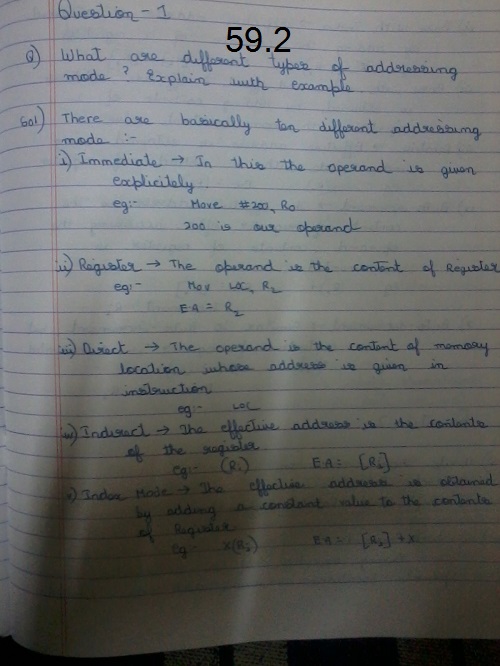 Question - 1
59.2
Q) What are different types of addressing
mode? Explain with example
Sol) There are basically ten different addressing
mode :-
i) Immediate → In this the operand is given
explicitely.
eg:- Move #200, R0
200 is our operand
ii) Register → The operand is the content of Register
eg:- Mov LOC, R2
EA = R2
iii) Direct → The operand is the content of memory
location whose address is given in
instruction
eg:- LOC
iv) Indirect → The effective address is the contents
of the register
eg:- EA =
v) Index Mode → The effective address is obtained
by adding a constant value to the contents
of Register
eg:- EA =